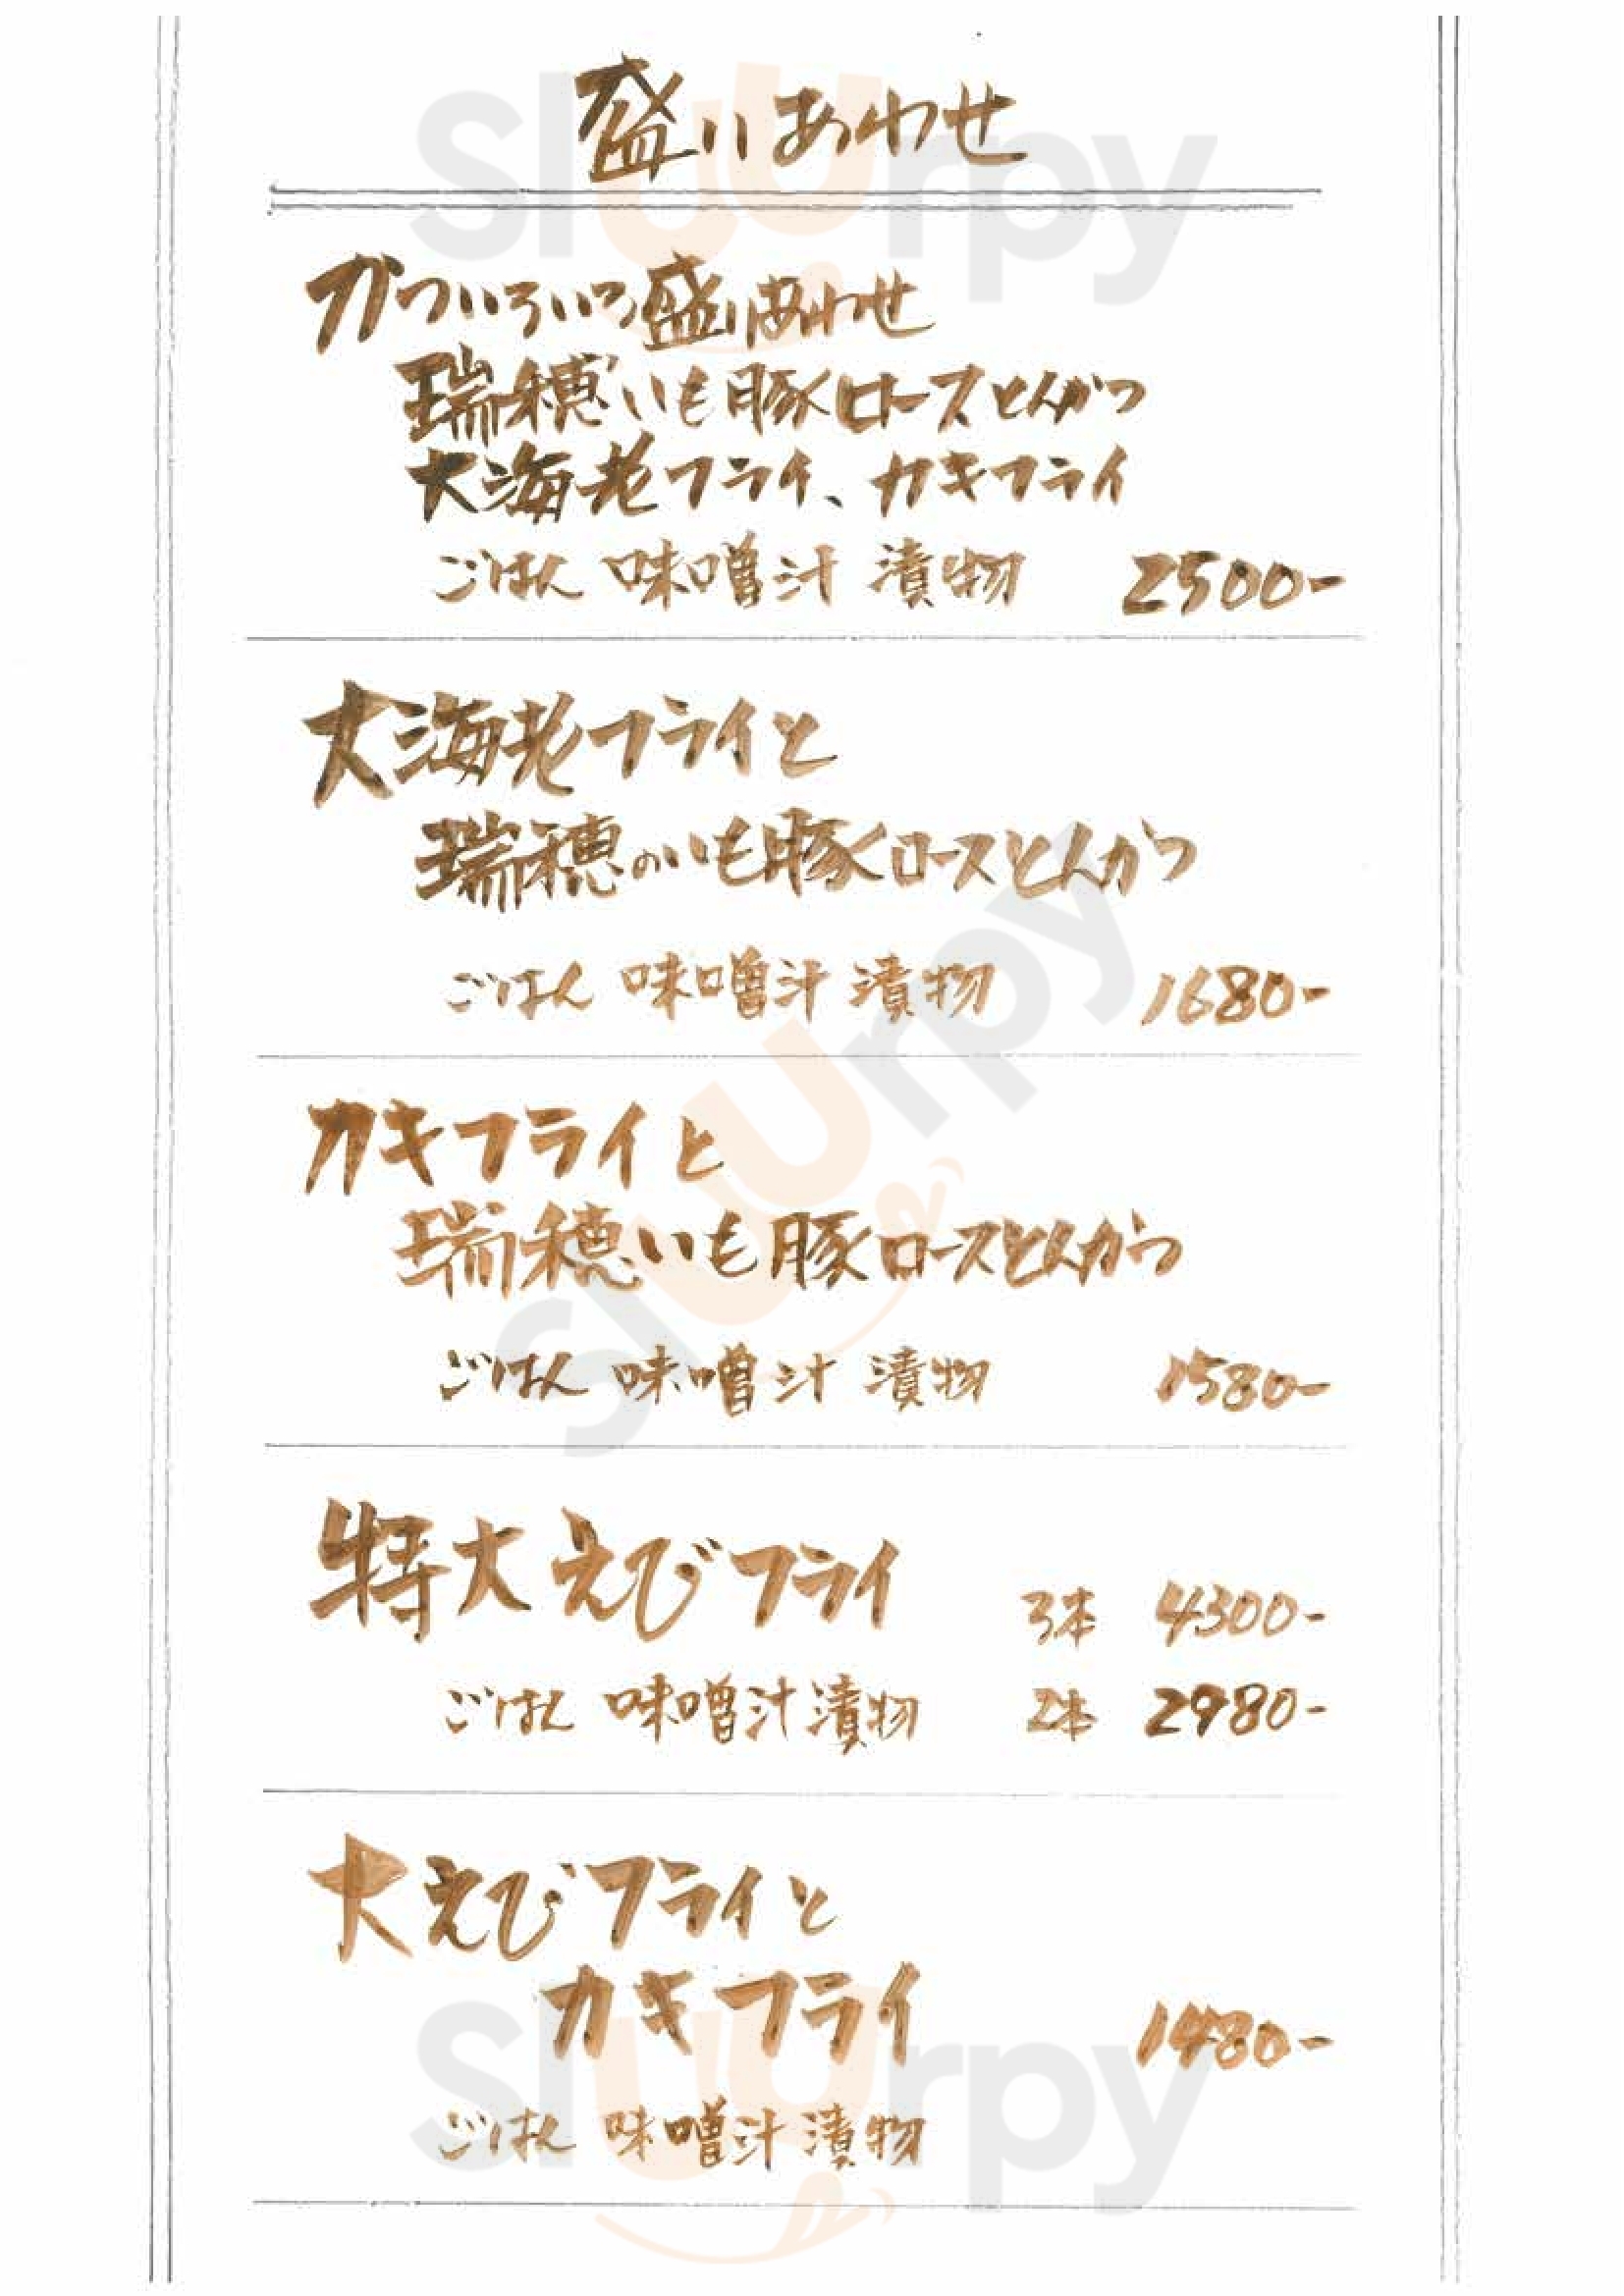 盛りあわせ
かついろいろ盛りあわせ
瑞穂いも豚ロースとんかつ
大海老フライ、カキフライ
ごはん 味噌汁 漬物 2500-
大海老フライと
瑞穂のいも豚ロースとんかつ
ごはん 味噌汁 漬物 1680-
カキフライと
瑞穂いも豚ロースとんかつ
ごはん 味噌汁 漬物 1580-
特大えびフライ 3本 4300-
ごはん 味噌汁 漬物 2本 2980-
大えびフライと
カキフライ 1480-
ごはん 味噌汁 漬物
sluurpy
sluurpy
sluurpy